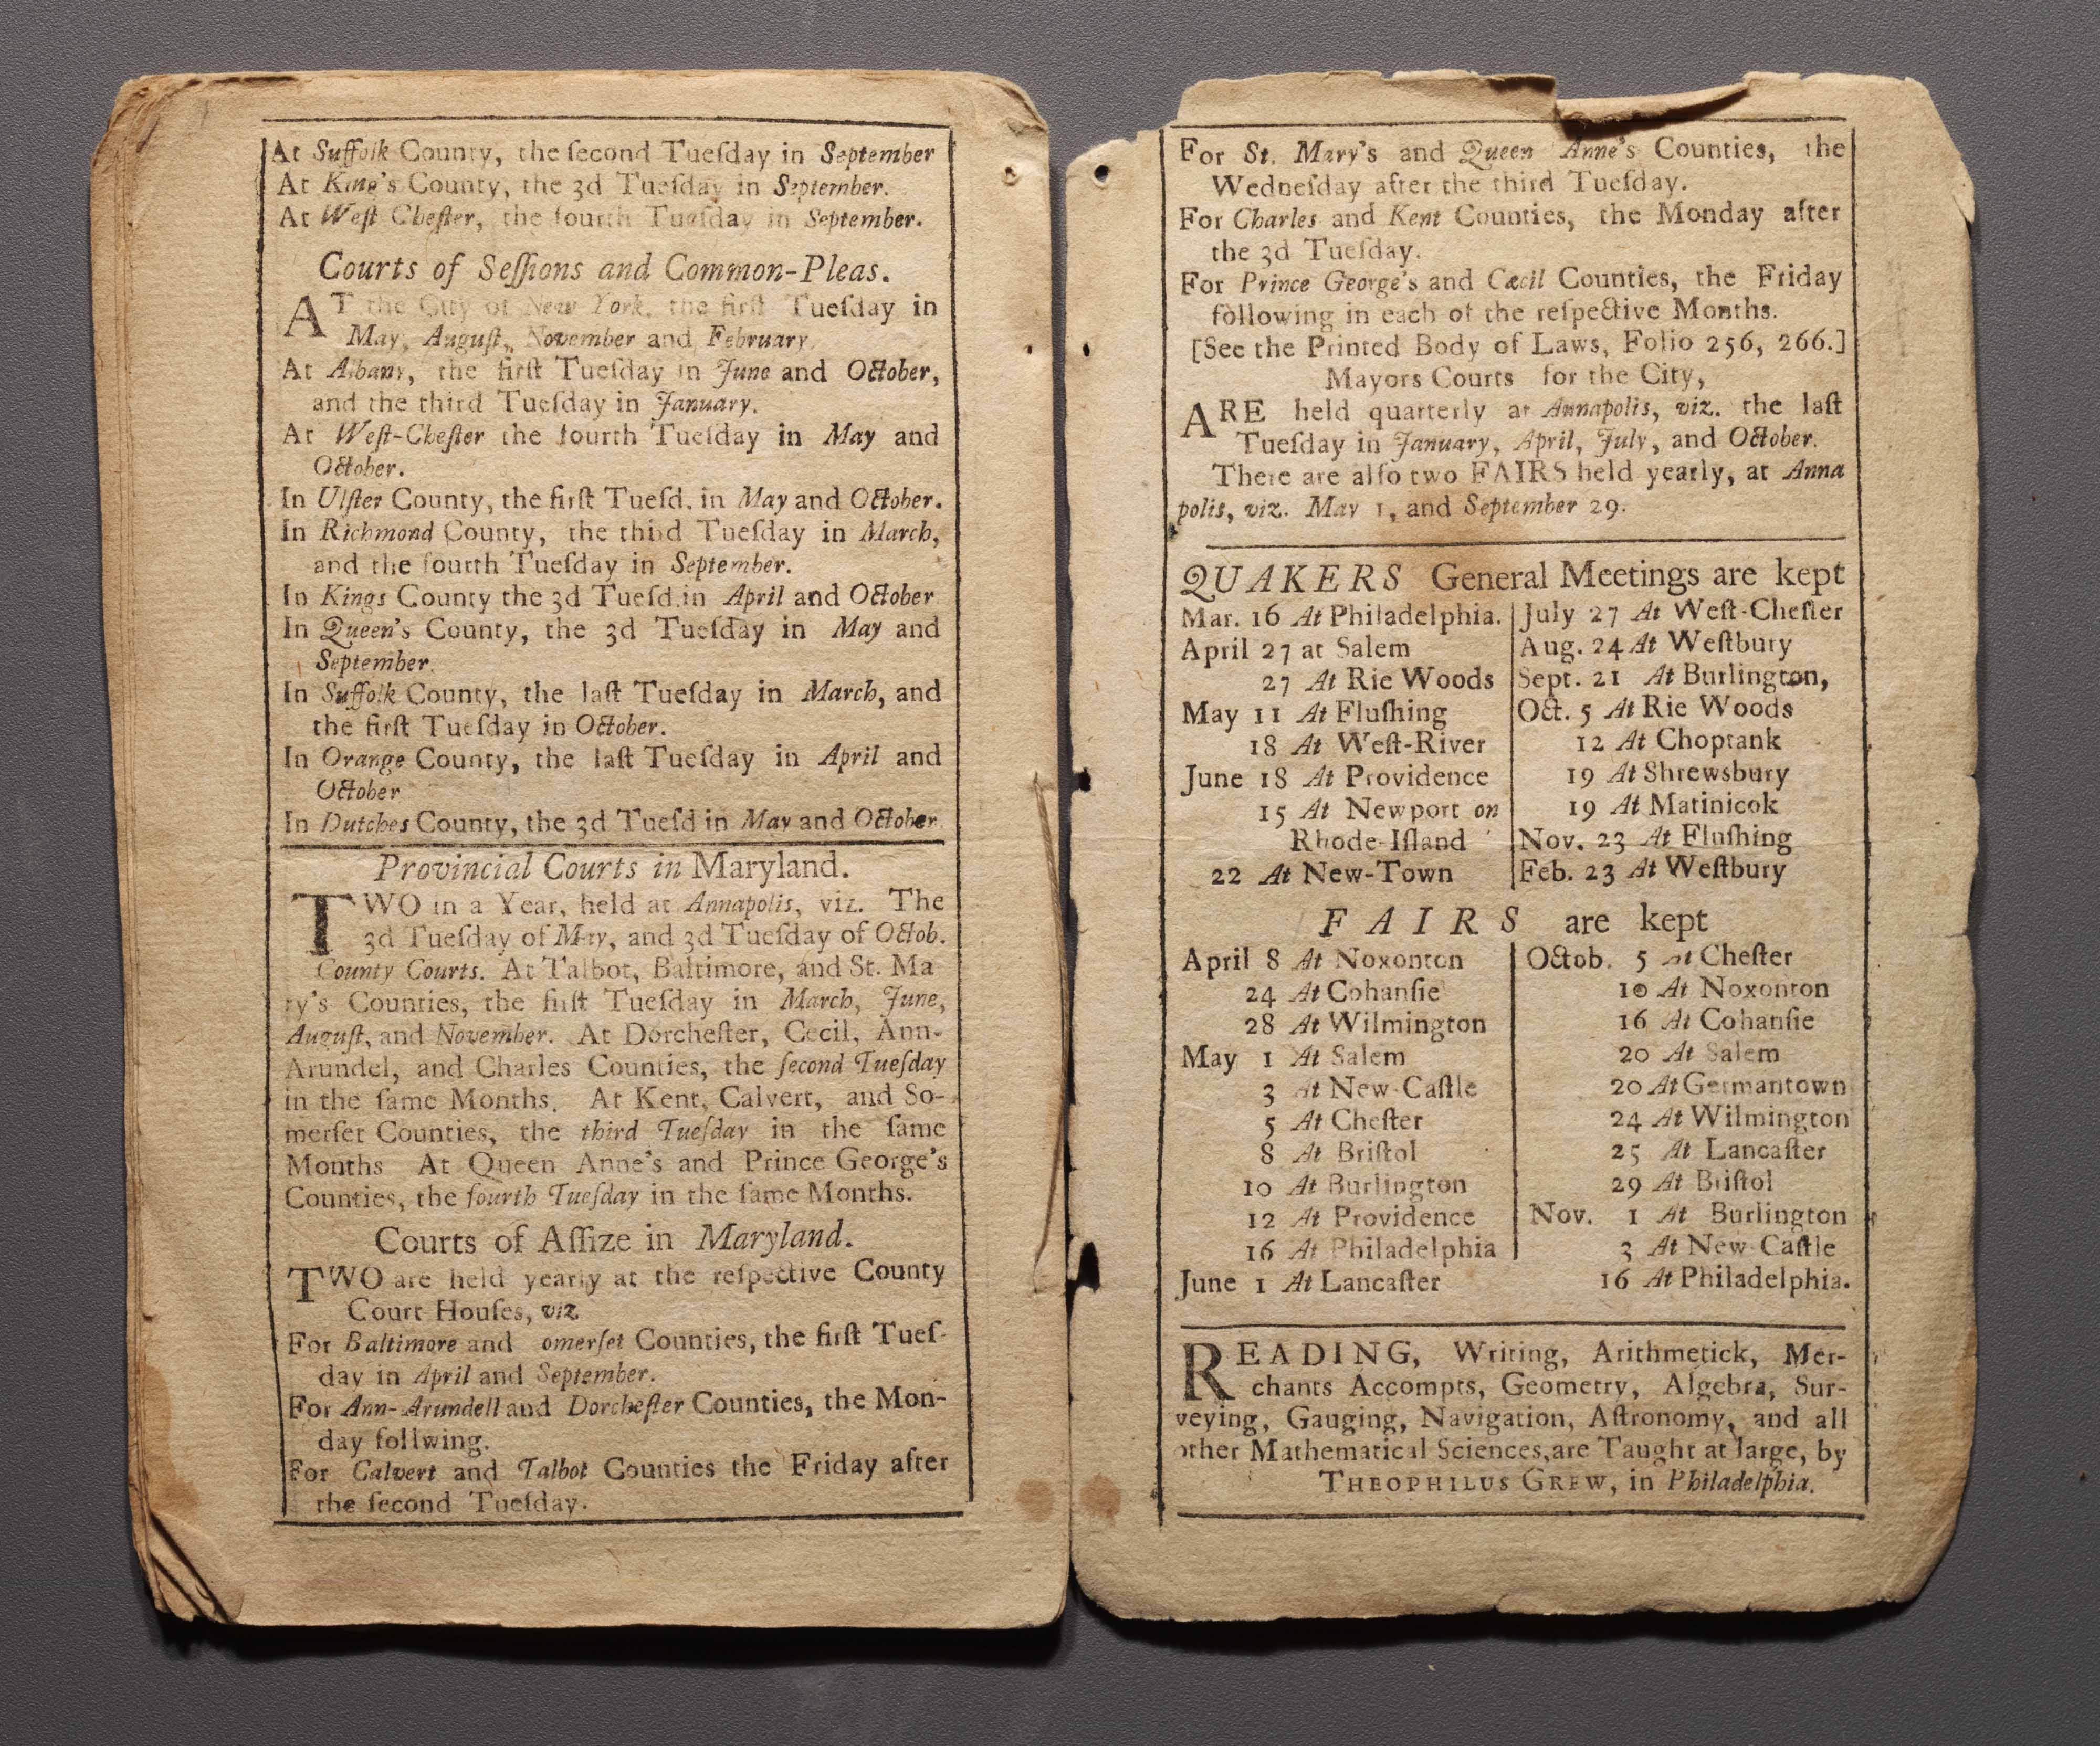 At Suffolk County, the ſecond Tueſday in September
At King's County, the 3d Tueſday in September.
At Weſt Cheſter, the fourth Tueſday in September.
Courts of Seſſions and Common-Pleas.
AT the City of New York, the firſt Tueſday in
May, Auguſt, November and February,
At Albany, the firſt Tueſday in June and October,
and the third Tueſday in January.
At Weſt-Cheſter the fourth Tueſday in May and
October.
In Ulſter County, the firſt Tueſd. in May and October.
In Richmond County, the third Tueſday in March,
and the fourth Tueſday in September.
In Kings County the 3d Tueſd.in April and October
In Queen's County, the 3d Tueſday in May and
September.
In Suffolk County, the laſt Tueſday in March, and
the firſt Tueſday in October.
In Orange County, the laſt Tueſday in April and
October
In Dutches County, the 3d Tueſd in May and October
Provincial Courts in Maryland.
TWO in a Year, held at Annapolis, viz. The
3d Tueſday of May, and 3d Tueſday of Octob.
County Courts. At Talbot, Baltimore, and St. Ma
ry's Counties, the firſt Tueſday in March, June,
Auguſt, and November. At Dorcheſter, Cecil, Ann-
Arundel, and Charles Counties, the ſecond Tueſday
in the ſame Months. At Kent, Calvert, and So-
merſet Counties, the third Tueſday in the ſame
Months At Queen Anne's and Prince George's
Counties, the fourth Tueſday in the ſame Months.
Courts of Aſſize in Maryland.
TWO are held yearly at the reſpective County
Court Houſes, viz
For Baltimore and omerſet Counties, the firſt Tueſ-
day in April and September.
For Ann-Arundell and Dorcheſter Counties, the Mon-
day follwing.
For Calvert and Talbot Counties the Friday after
the ſecond Tueſday.
For St. Mary's and Queen Anne's Counties, the
Wedneſday after the third Tueſday.
For Charles and Kent Counties, the Monday after
the 3d Tueſday.
For Prince George's and Cæcil Counties, the Friday
following in each of the reſpective Months.
[See the Printed Body of Laws, Folio 256, 266.]
Mayors Courts for the City,
ARE held quarterly at Annapolis, viz. the laſt
Tueſday in January, April, July, and October.
There are alſo two FAIRS held yearly, at Anna
polis, viz. May 1, and September 29.
QUAKERS General Meetings are kept
Mar. 16 At Philadelphia.
April 27 at Salem
27 At Rie Woods
May 11 At Fluſhing
18 At Weſt-River
June 18 At Providence
15 At Newport on
Rhode-Iſland
22 At New-Town
July 27 At Weſt-Cheſter
Aug. 24 At Weſtbury
Sept. 21 At Burlington,
Oct. 5 At Rie Woods
12 At Choptank
19 At Shrewsbury
19 At Matinicok
Nov. 23 At Fluſhing
Feb. 23 At Weſtbury
FAIRS are kept
April 8 At Noxonton
24 At Cohanſie
28 At Wilmington
May 1 At Salem
3 At New-Caſtle
5 At Cheſter
8 At Briſtol
10 At Burlington
12 At Providence
16 At Philadelphia
June 1 At Lancaſter
Octob. 5 at Cheſter
10 At Noxonton
16 At Cohanſie
20 At Salem
20 At Germantown
24 At Wilmington
25 At Lancaſter
29 At Briſtol
Nov. 1 At Burlington
3 At New-Caſtle
16 At Philadelphia.
READING, Writing, Arithmetick, Mer-
chants Accompts, Geometry, Algebra, Sur-
veying, Gauging, Navigation, Aſtronomy, and all
other Mathematical Sciences,are Taught at large, by
THEOPHILUS GREW, in Philadelphia.